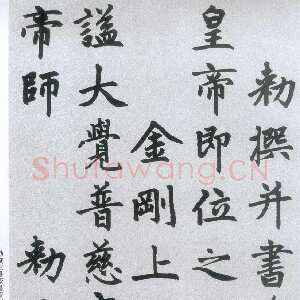 勑撰并書
皇帝即位之
金剛上
諡大覺普慈
帝師 勑
Shufawang.CN